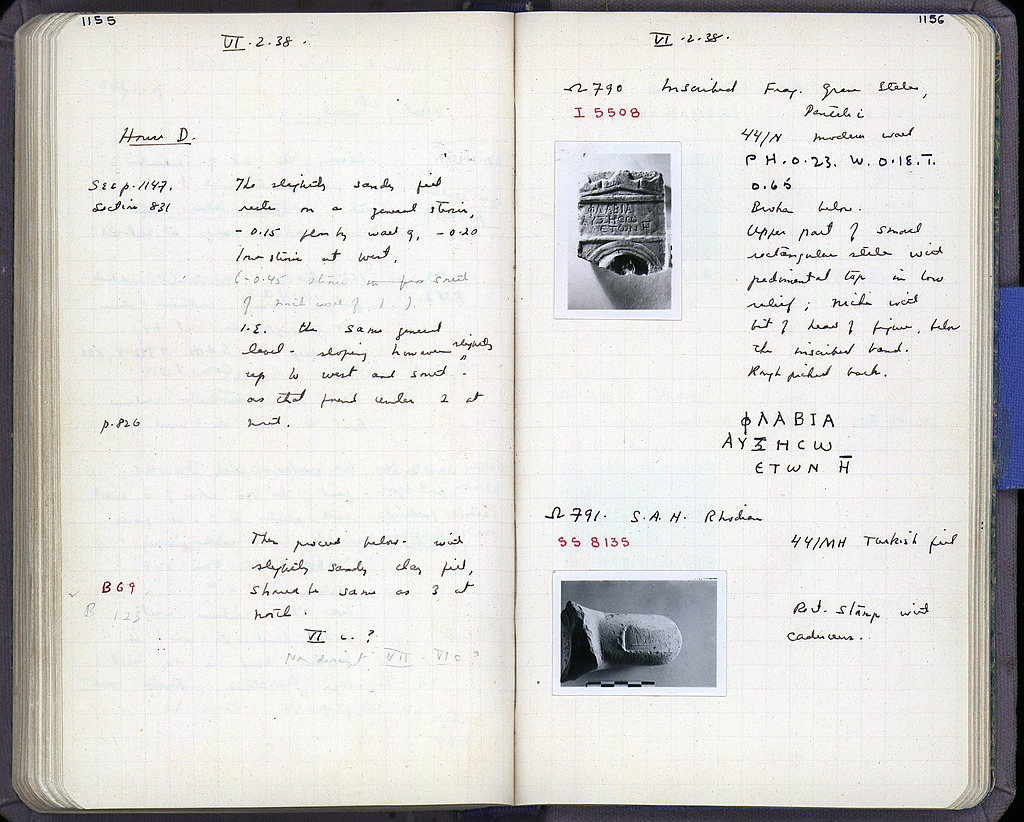 1155
VI.2.38.
House D.
See p. 1147.
Section 831
The slightly sandy fill
rests on a general stosis,
-0.15 floor by wall 9, -0.20
low stosis at west,
(-0.45 south
of north wall of
I.E. the same general
level - sloping however slightly
up to west and south -
as that found under 2 at
north.
p. 826
Then proceed below - with
slightly sandy clay fill,
should be same as 3 at
north.
B69
B 123
VI c. ?
VII - VI c ?
1156
VI.2.38.
Ω 790 Inscribed Frag. Grave Stele,
I 5508
Pentelic
44/N modern wall
P H. 0.23. W. 0.18. T.
0.65
Broken below.
Upper part of small
rectangular stele with
pedimental top in low
relief; niche with
bit of head of figure, below
the inscribed band.
Rough picked back.
ΦΛΑΒΙΑ
ΑΥΞΗCω
ΕΤωΝ Η
ΦΛΑΒΙΑ
ΑΥΞΗCω
ΕΤωΝ Η̅
Ω 791. S.A.H. Rhodian
SS 8135
44/MH Turkish fill
Rect. stamp with
caduceus.